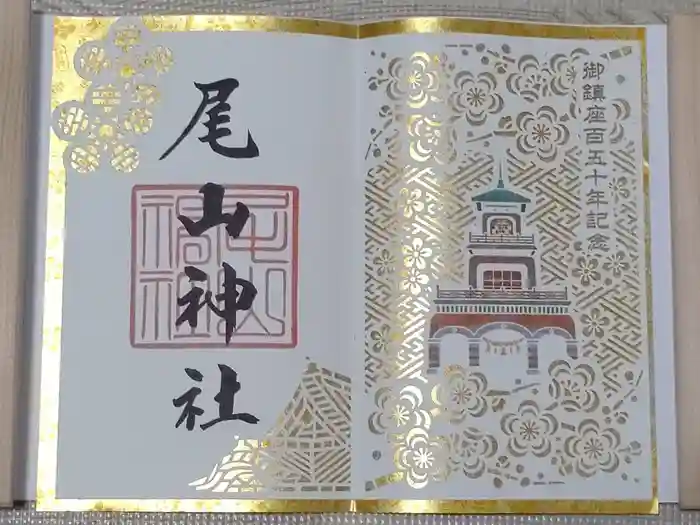 御鎮座百五十年記念
尾山神社
尾山神社